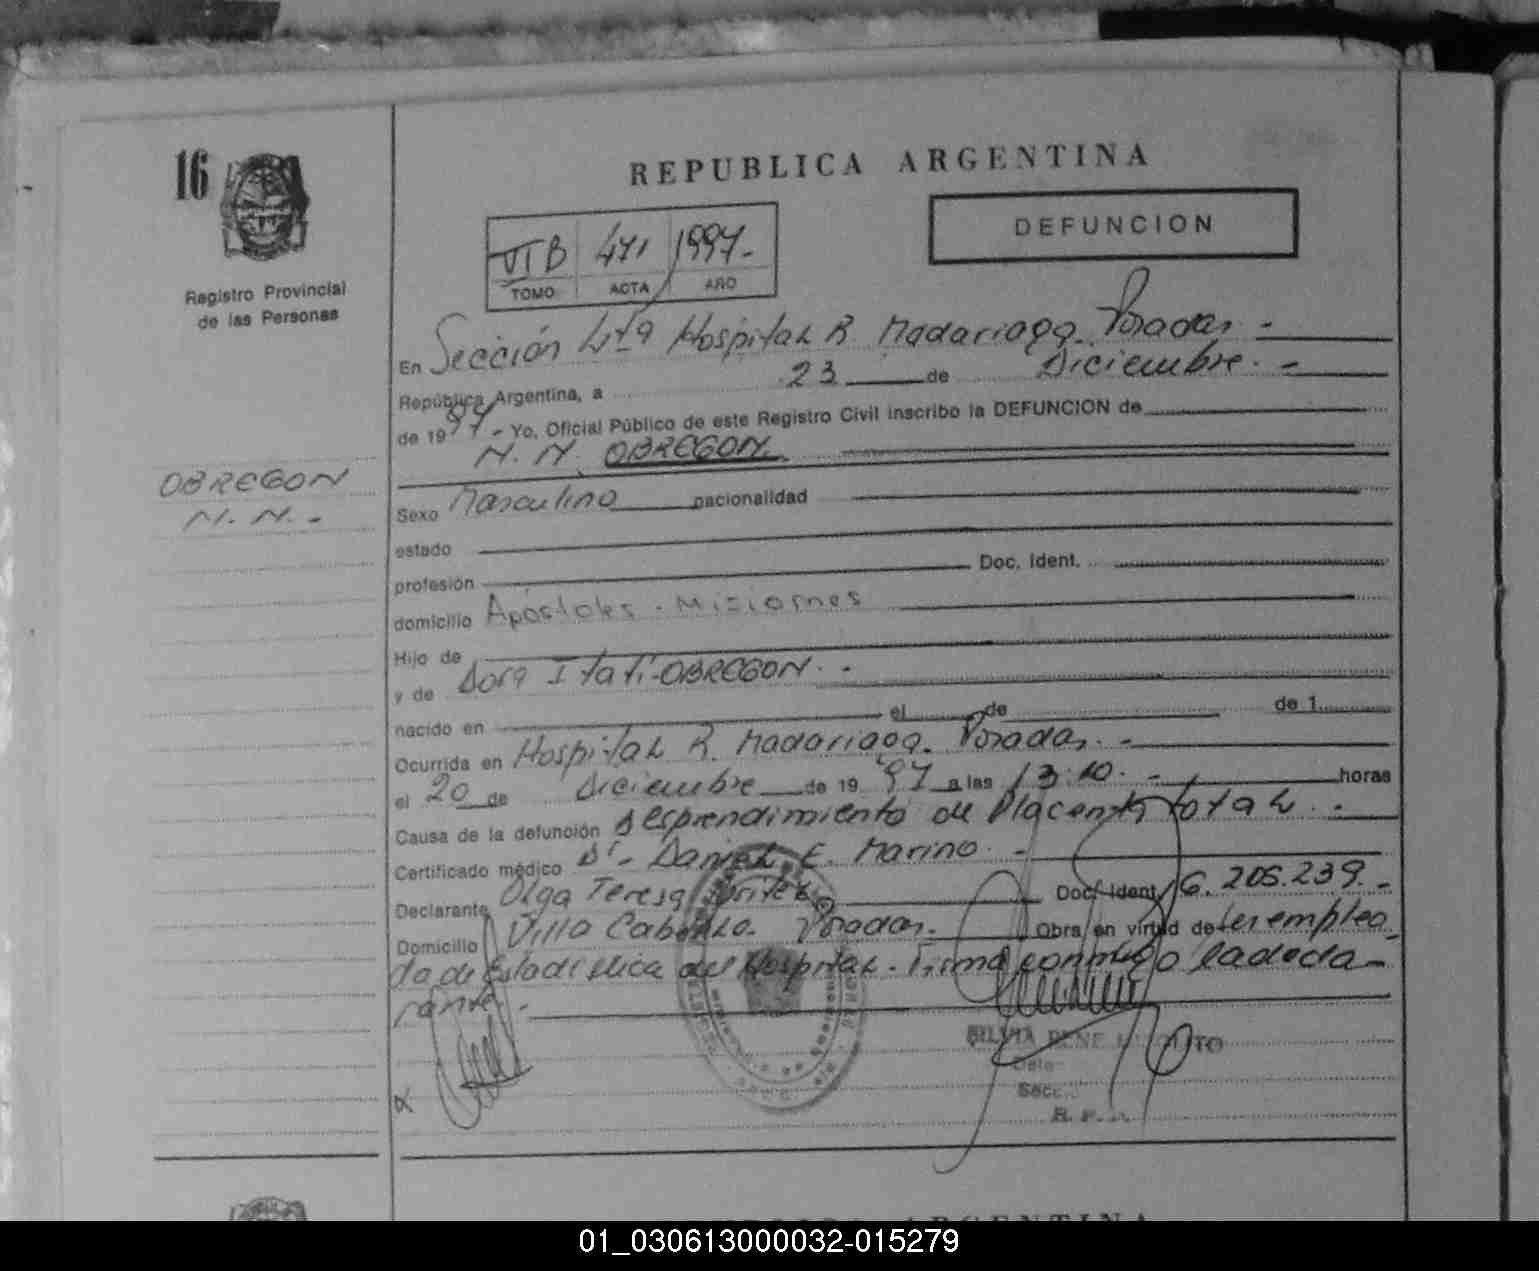 16
REPUBLICA ARGENTINA
DEFUNCION
VI B 471 1997.-
TOMO ACTA AÑO
Registro Provincial
de las Personas
En Sección 4ta Hospital R. Madariaga. Posadas -
República Argentina, a 23 de Diciembre. -
de 1997 - Yo, Oficial Público de este Registro Civil inscribo la DEFUNCION de
N. N. OBREGON.
OBREGON
N. N. -
Sexo Masculino nacionalidad
estado
profesión Doc. Ident.
domicilio Apóstoles - Misiones
Hijo de
y de Dora Itatí - OBREGON. -
nacido en el de de 1
Ocurrida en Hospital R. Madariaga. Posadas. -
el 20 de Diciembre de 19 97 a las 13:10. - horas
Causa de la defunción desprendimiento de Placenta total. -
Certificado médico Dr. Daniel E. Marino. -
Declarante Olga Teresa Doc. Ident. 6.205.239. -
Domicilio Villa Cabello. Posadas. Obra en virtud de ser emplea
da de Estadistica del Hospital. Firma conmigo la decla-
rante. -
SILVIA
Secc.
01_030613000032-015279